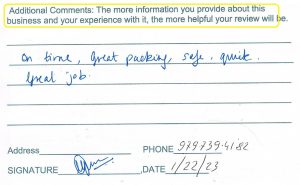 Additional Comments: The more information you provide about this
business and your experience with it, the more helpful your review will be.
On time, Great packing, safe, quick.
Great job.
Address
PHONE 979739-4182
SIGNATURE
DATE 1/22/23